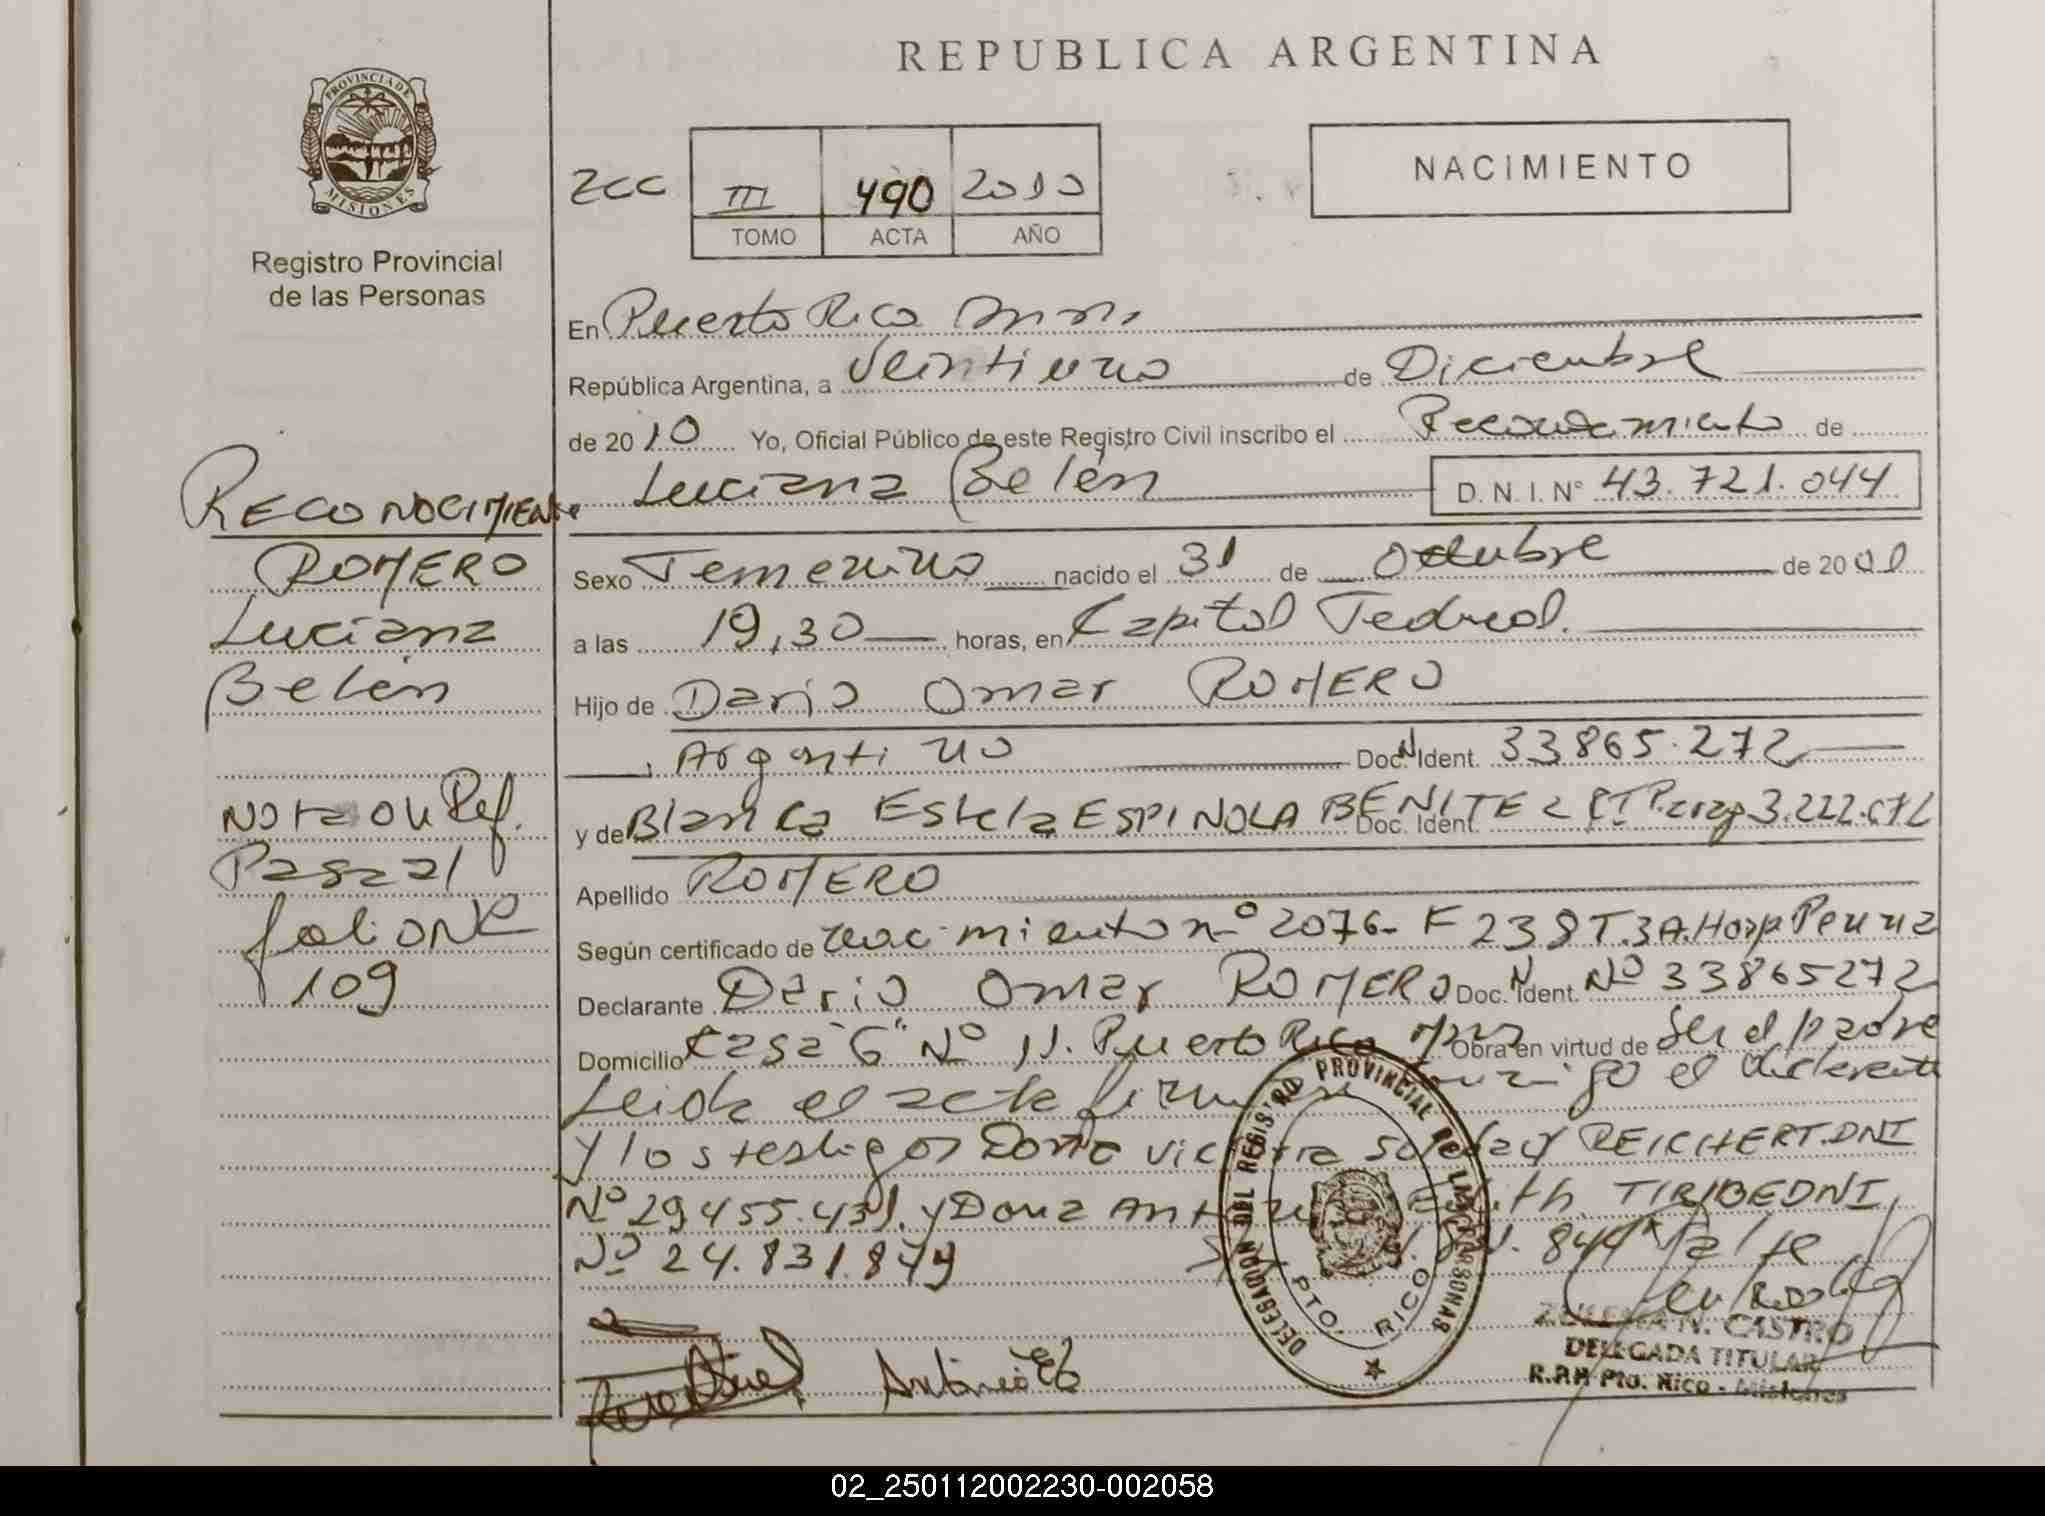 REPUBLICA ARGENTINA
PROVINCIA DE
MISIONES
Registro Provincial
de las Personas
III 490 2010
TOMO ACTA AÑO
NACIMIENTO
RECONOCIMIENTO
ROMERO
Luciana
Belén
Nota en Ref.
Pasa al
folio Nº
109
En Puerto Rico Mnes.
República Argentina, a Veintiuno de Diciembre
de 2010 Yo, Oficial Público de este Registro Civil inscribo el Reconocimiento de
Luciana Belén D. N. I. Nº 43.721.044
Sexo Femenino nacido el 31 de Octubre de 2001
a las 19,30 horas, en Capital Federal.
Hijo de Dario Omar ROMERO
, Argentino Doc. N Ident. 33865.272
y de Blanca Estela ESPINOLA BENITEZ Doc. Ident. CI Parag 3.222.672
Apellido ROMERO
Según certificado de nacimiento nº 2076- F 238 T.3A. Hosp Penna
Declarante Dario Omar ROMERO Doc. N Ident. Nº 33865272
Domicilio Casa "G" Nº 11. Puerto Rico Mnes Obra en virtud de Ser el padre
Leida el acta firman conmigo el declarante
y los testigos Doña Victoria Soledad REICHERT. DNI
Nº 29.455.431. y Doña Edith TIRIBE DNI
Nº 24.831.879
DELEGACION DEL REGISTRO PROVINCIAL DE LAS PERSONAS
PTO. RICO
ZULEMA N. CASTRO
DELEGADA TITULAR
R.P.P. Pto. Rico - Misiones
02_250112002230-002058